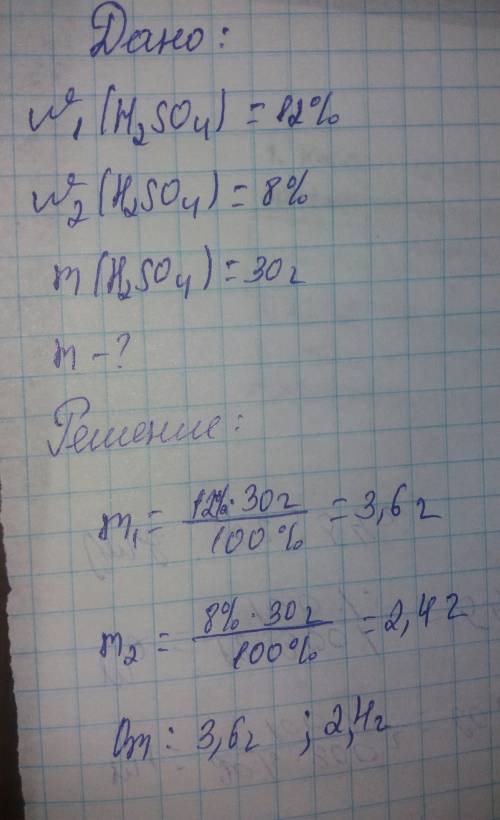 Дано:
w₁(H₂SO₄) = 12%
w₂(H₂SO₄) = 8%
m(H₂SO₄) = 30г
m - ?
Решение:
m₁ = 12%·30г / 100% = 3,6г
m₂ = 8%·30г / 100% = 2,4г
От: 3,6г ; 2,4г